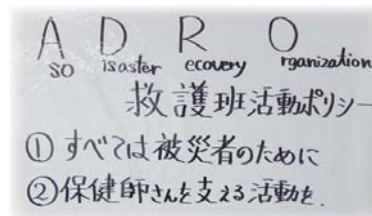 A D R O
so isaster ecovery rganization
救護班活動ポリシー
① すべては被災者のために
② 保健師さんを支える活動を.